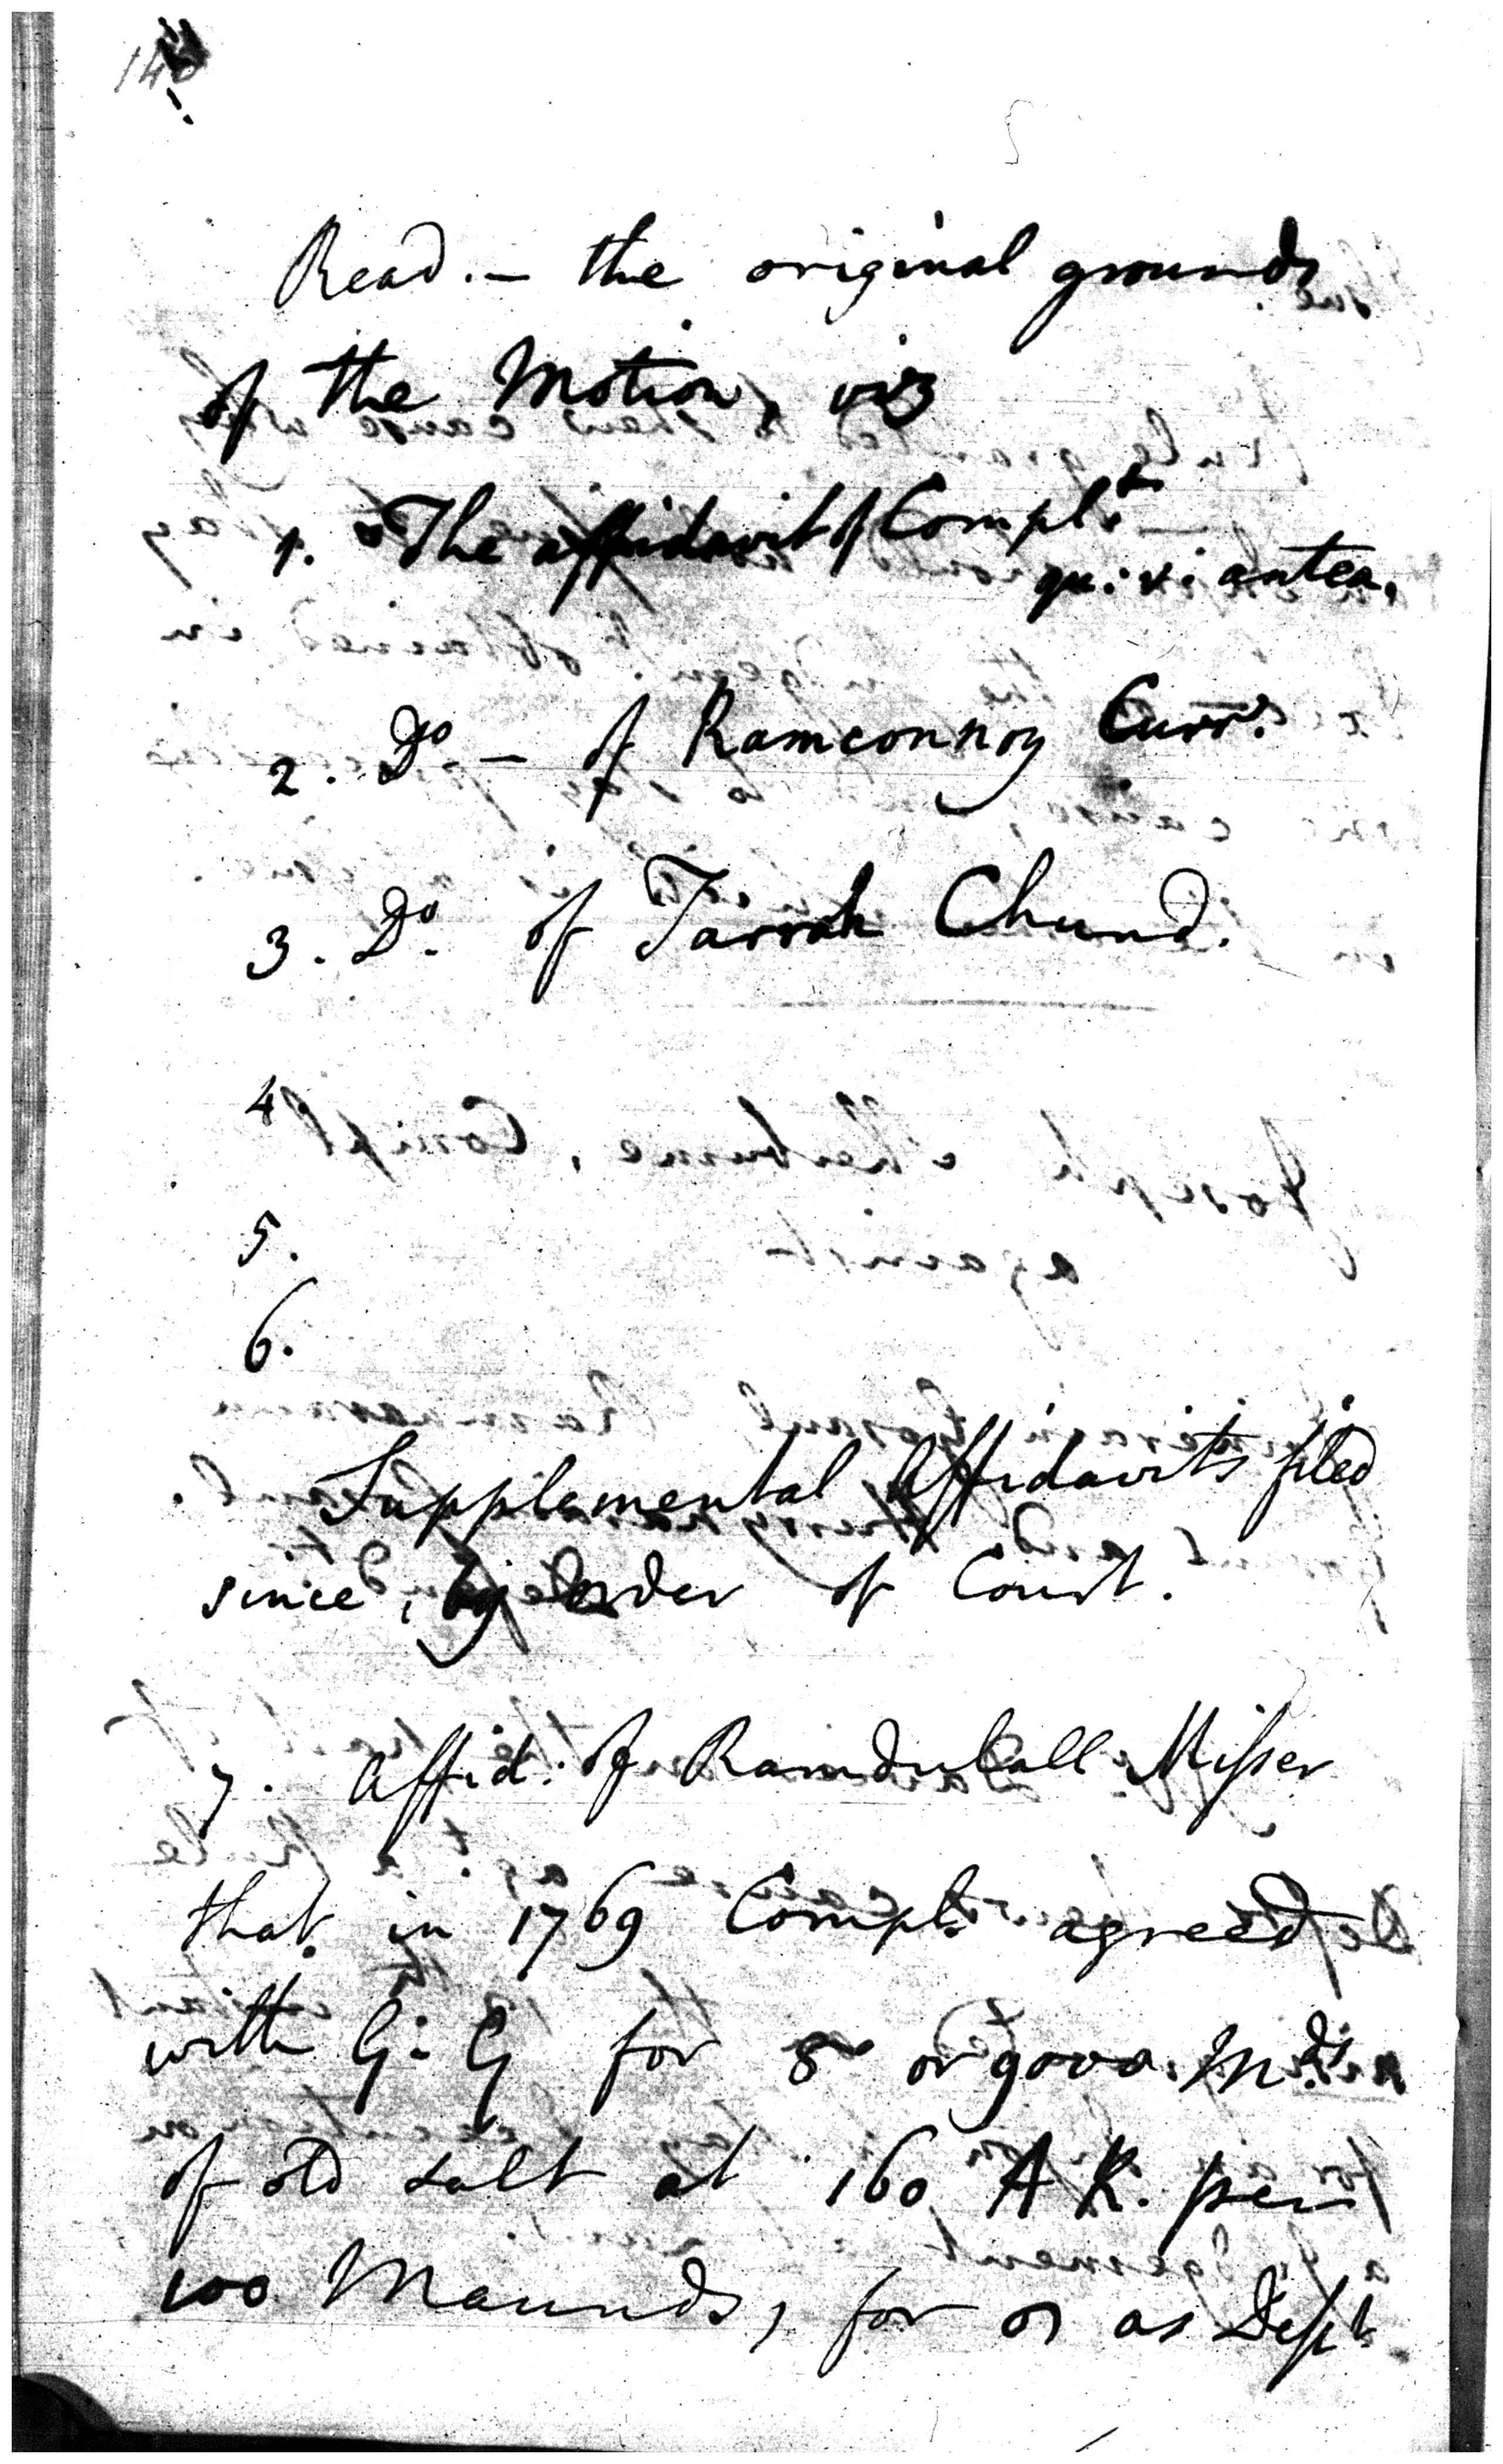 140
Read. – the original grounds
of the Motion, viz
1. The affidavit of Complt
qu: v: antea.
2. Do. – of Ramconnoy Curr:
3. Do. of Tarrah Chund.
4
5.
6.
Supplemental Affidavits filed
since, by order of Court.
7. Affid: of Ramdulall Misser
that in 1769 Complt. agreed
with G: G for 8 or 9000. Mds
of old salt at 160 A R. per
100 Maunds, for or as Deft